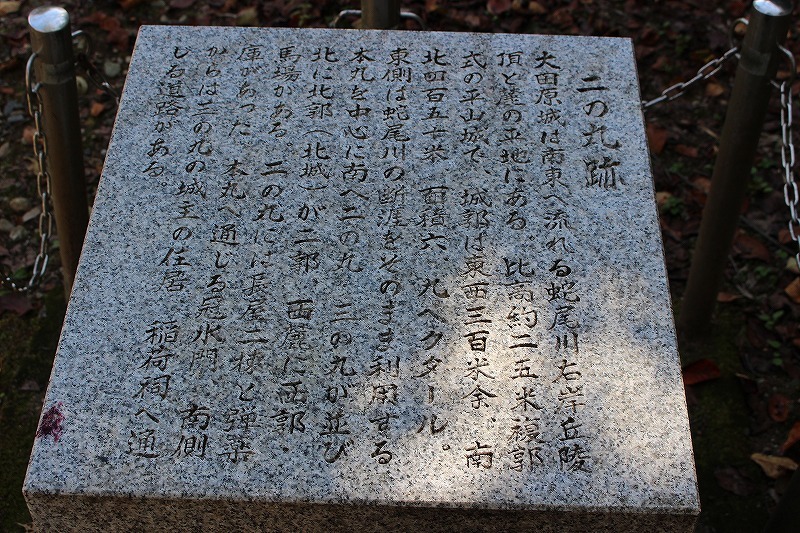 二の丸跡
大田原城は南東へ流れる蛇尾川右岸丘陵
頂と麓の平地にある。比高約二五米複郭
式の平山城で、城郭は東西三百米余、南
北四百五十米、面積六、九ヘクタール。
東側は蛇尾川の断崖をそのまま利用する
本丸を中心に南へ二の丸、三の丸が並び
北に北郭(北城)が二郭、西麓に西郭・
馬場がある。二の丸には長屋二棟と弾薬
庫があった。本丸へ通じる
からは三の丸の城主の住居 稲荷祠へ通
じる道路がある。